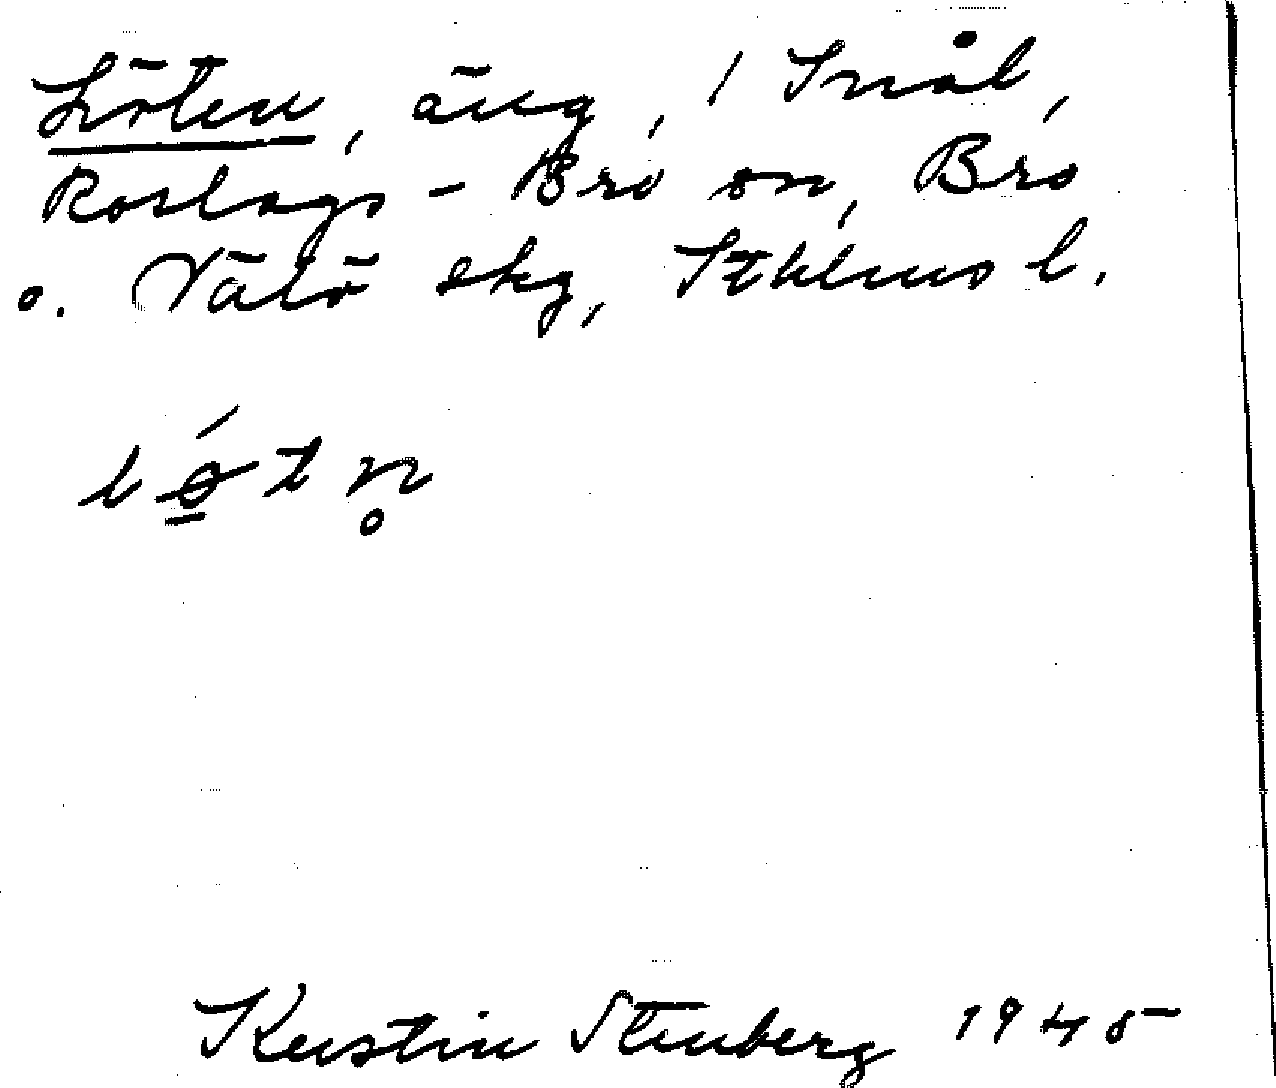 Löten, äng, / Snål,
Roslags-Bro sn, Bro
o. Vätö skg, Sthlms l.
lǿ̱tn̥
Kerstin Stenberg 1945